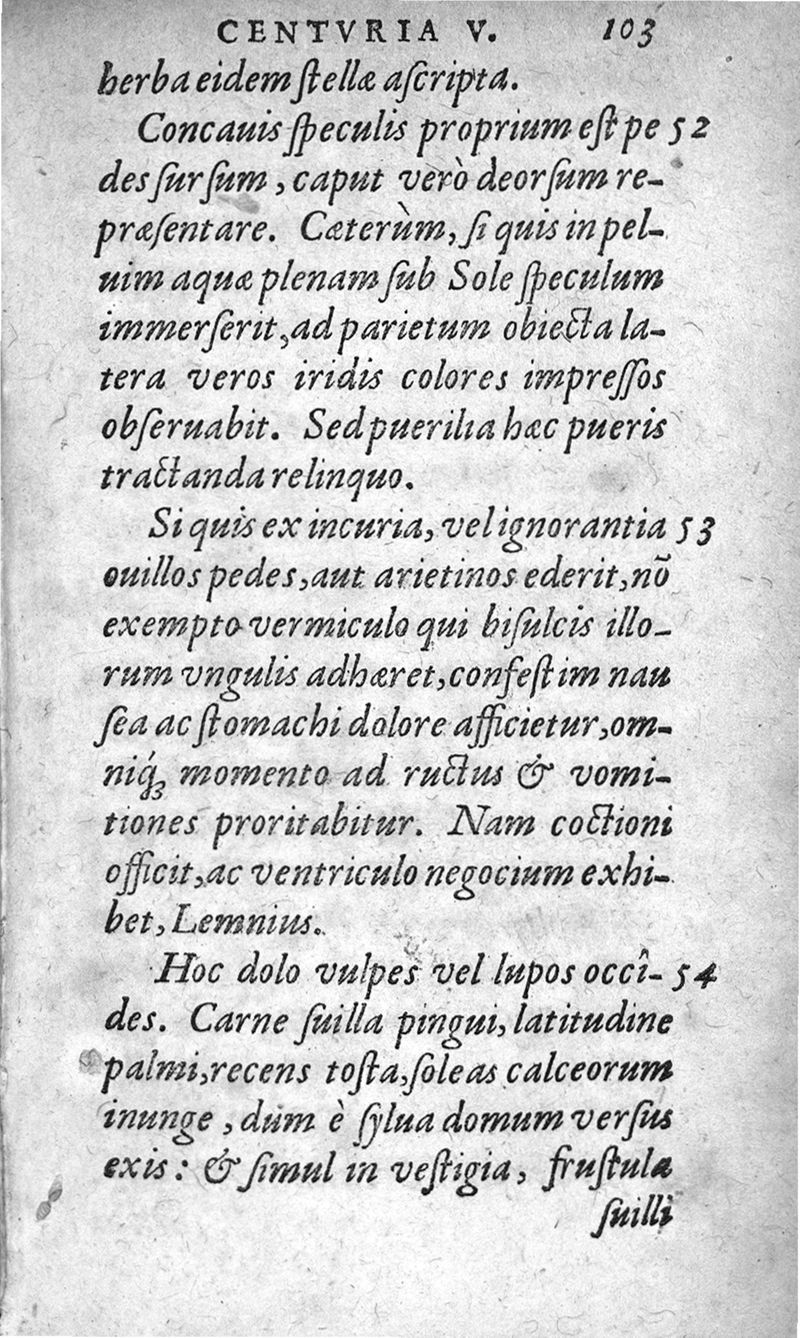 CENTVRIA V. 103
herba eidem ſtellæ aſcripta.
Concauis ſpeculis proprium eſt pe 52
des ſurſum, caput verò deorſum re-
præſentare. Cæterùm, ſi quis in pel-
uim aquæ plenam ſub Sole ſpeculum
immerſerit, ad parietum obiecta la-
tera veros iridis colores impreſſos
obſeruabit. Sed puerilia hæc pueris
tractanda relinquo.
Si quis ex incuria, vel ignorantia 53
ouillos pedes, aut arietinos ederit, nõ
exempto vermiculo qui biſulcis illo-
rum vngulis adhæret, confeſtim nau
ſea ac ſtomachi dolore afficietur, om-
niq́ꝫ momento ad ructus & vomi-
tiones proritabitur. Nam coctioni
officit, ac ventriculo negocium exhi-
bet, Lemnius.
Hoc dolo vulpes vel lupos occî- 54
des. Carne ſuilla pingui, latitudine
palmi, recens toſta, ſoleas calceorum
inunge, dum è ſylua domum verſus
exis: & ſimul in veſtigia, fruſtula
ſuilli